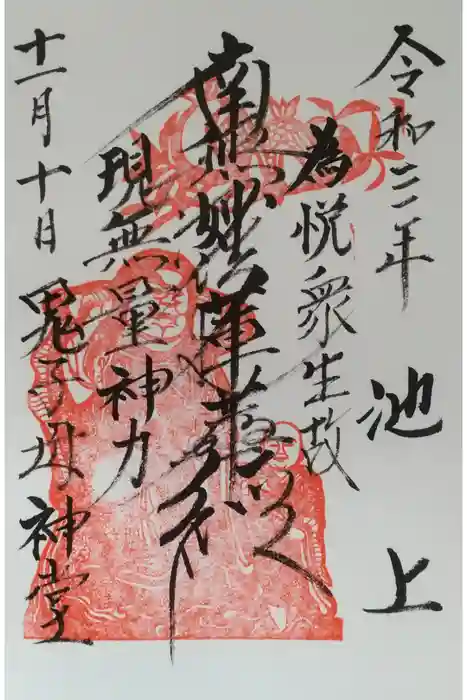 令和二年 池上
為悦衆生故
南無妙法蓮華経
現無量神力
十一月十日 鬼子母神堂